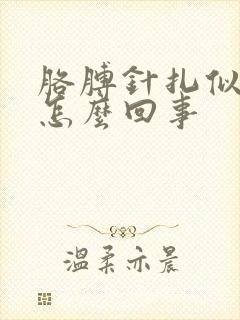 胳膊針扎似
怎麼回事
溫柔亦晨